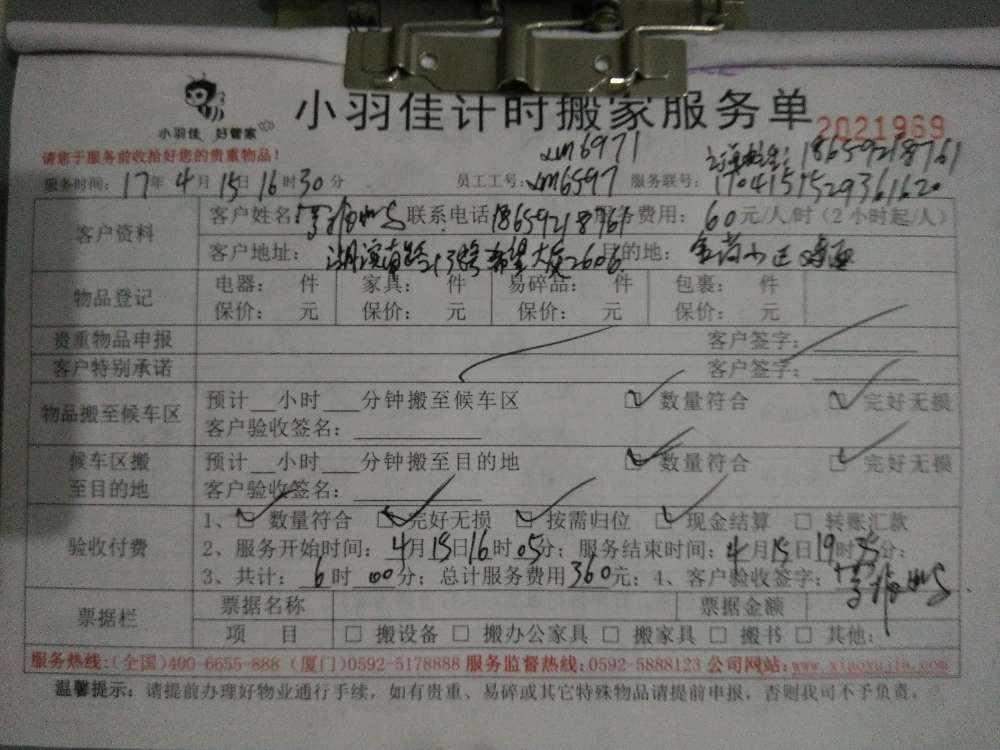 小羽佳 好管家
小羽佳计时搬家服务单
2021969
请您于服务前收拾好您的贵重物品！
xm6971
18659218761
服务时间：17年4月15日16时30分 员工工号：xm6597 服务联号：
客户资料 客户姓名 联系电话 18659218761 服务费用：60元/人/时（2小时起/人）
客户地址：湖滨南路 希望大厦2606 目的地：
物品登记 电器： 件 家具： 件 易碎品： 件 包裹： 件
保价： 元 保价： 元 保价： 元 保价： 元
贵重物品申报 客户签字：
客户特别承诺 客户签字：
物品搬至候车区 预计__小时___分钟搬至候车区 数量符合 完好无损
客户验收签名：
候车区搬至目的地 预计__小时___分钟搬至目的地 数量符合 完好无损
客户验收签名：
验收付费 1、 数量符合 完好无损 按需归位 现金结算 转账汇款
2、服务开始时间：4月15日16时05分；服务结束时间：4月15日19时35分；
3、共计：6时00分；总计服务费用360元；4、客户验收签字：
票据栏 票据名称 票据金额
项 目 搬设备 搬办公家具 搬家具 搬书 其他：
服务热线：(全国)400-6655-888 (厦门)0592-5178888 服务监督热线：0592-5888123 公司网站：www.xiaoyujia.com
温馨提示：请提前办理好物业通行手续，如有贵重、易碎或其它特殊物品请提前申报，否则我司不予负责。